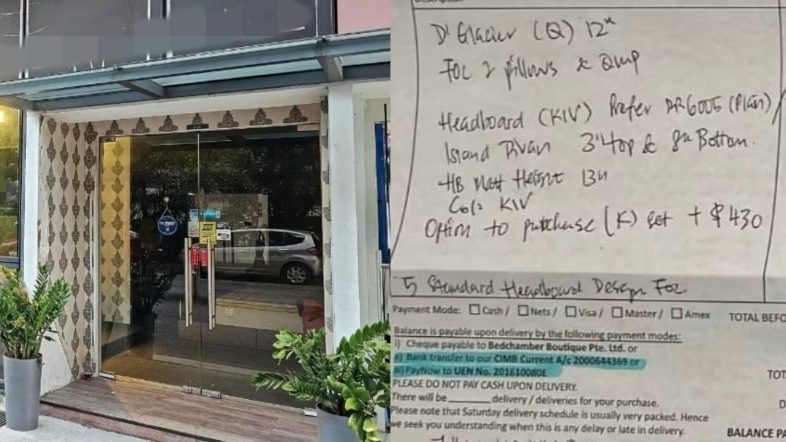 D' Glacier (Q) 12"
FOC 2 pillows & QMP
Headboard (KIV) Prefer DR6005 (Plain)
Island Divan 3" top & 8" Bottom.
HB Matt Height 13"
Col: KIV
Option to purchase (K) set + $430
Standard Headboard Design FOC
Payment Mode: Cash / Nets / Visa / Master / Amex TOTAL BEFO
Balance is payable upon delivery by the following payment modes:
i) Cheque payable to Bedchamber Boutique Pte. Ltd. or
ii) Bank transfer to our CIMB Current A/c 2000644369 or
iii) PayNow to UEN No. 201610080E
TOT
PLEASE DO NOT PAY CASH UPON DELIVERY.
There will be ________ delivery / deliveries for your purchase.
D
Please note that Saturday delivery schedule is usually very packed. Hence
we seek you understanding when this is any delay or late in delivery.
BALANCE PA